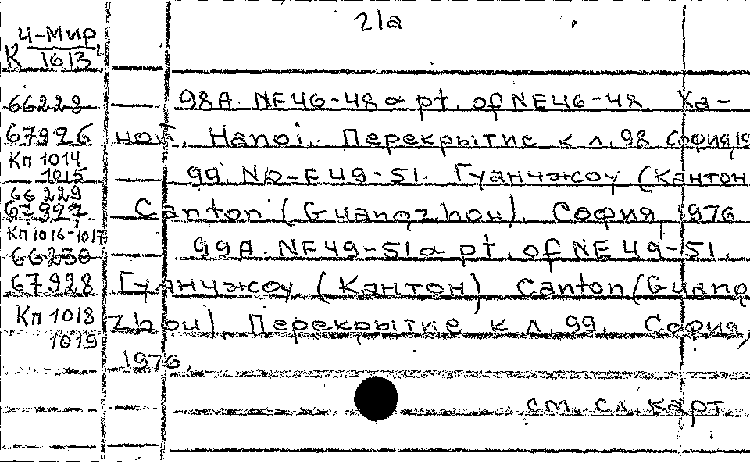 21а
Ч-Мир
К 1613
66228 98А. NE46-48 & pt. of NE46-48. Ха-
67926 ной. Hanoi. Перекрытие к л. 98 София, 19
Кп 1014
1015 99. ND-F 49-51. Гуанчжоу (Кантон
66229
67927 Canton (Guangzhou). София, 1976
Кп 1016-1017 99А. NF49-51 & pt. of NE 49-51.
66230
67928 Гуанчжоу (Кантон) Canton (Guang
Кп 1018 zhou). Перекрытие к л. 99. София,
1019
1976.
см. сл. карт